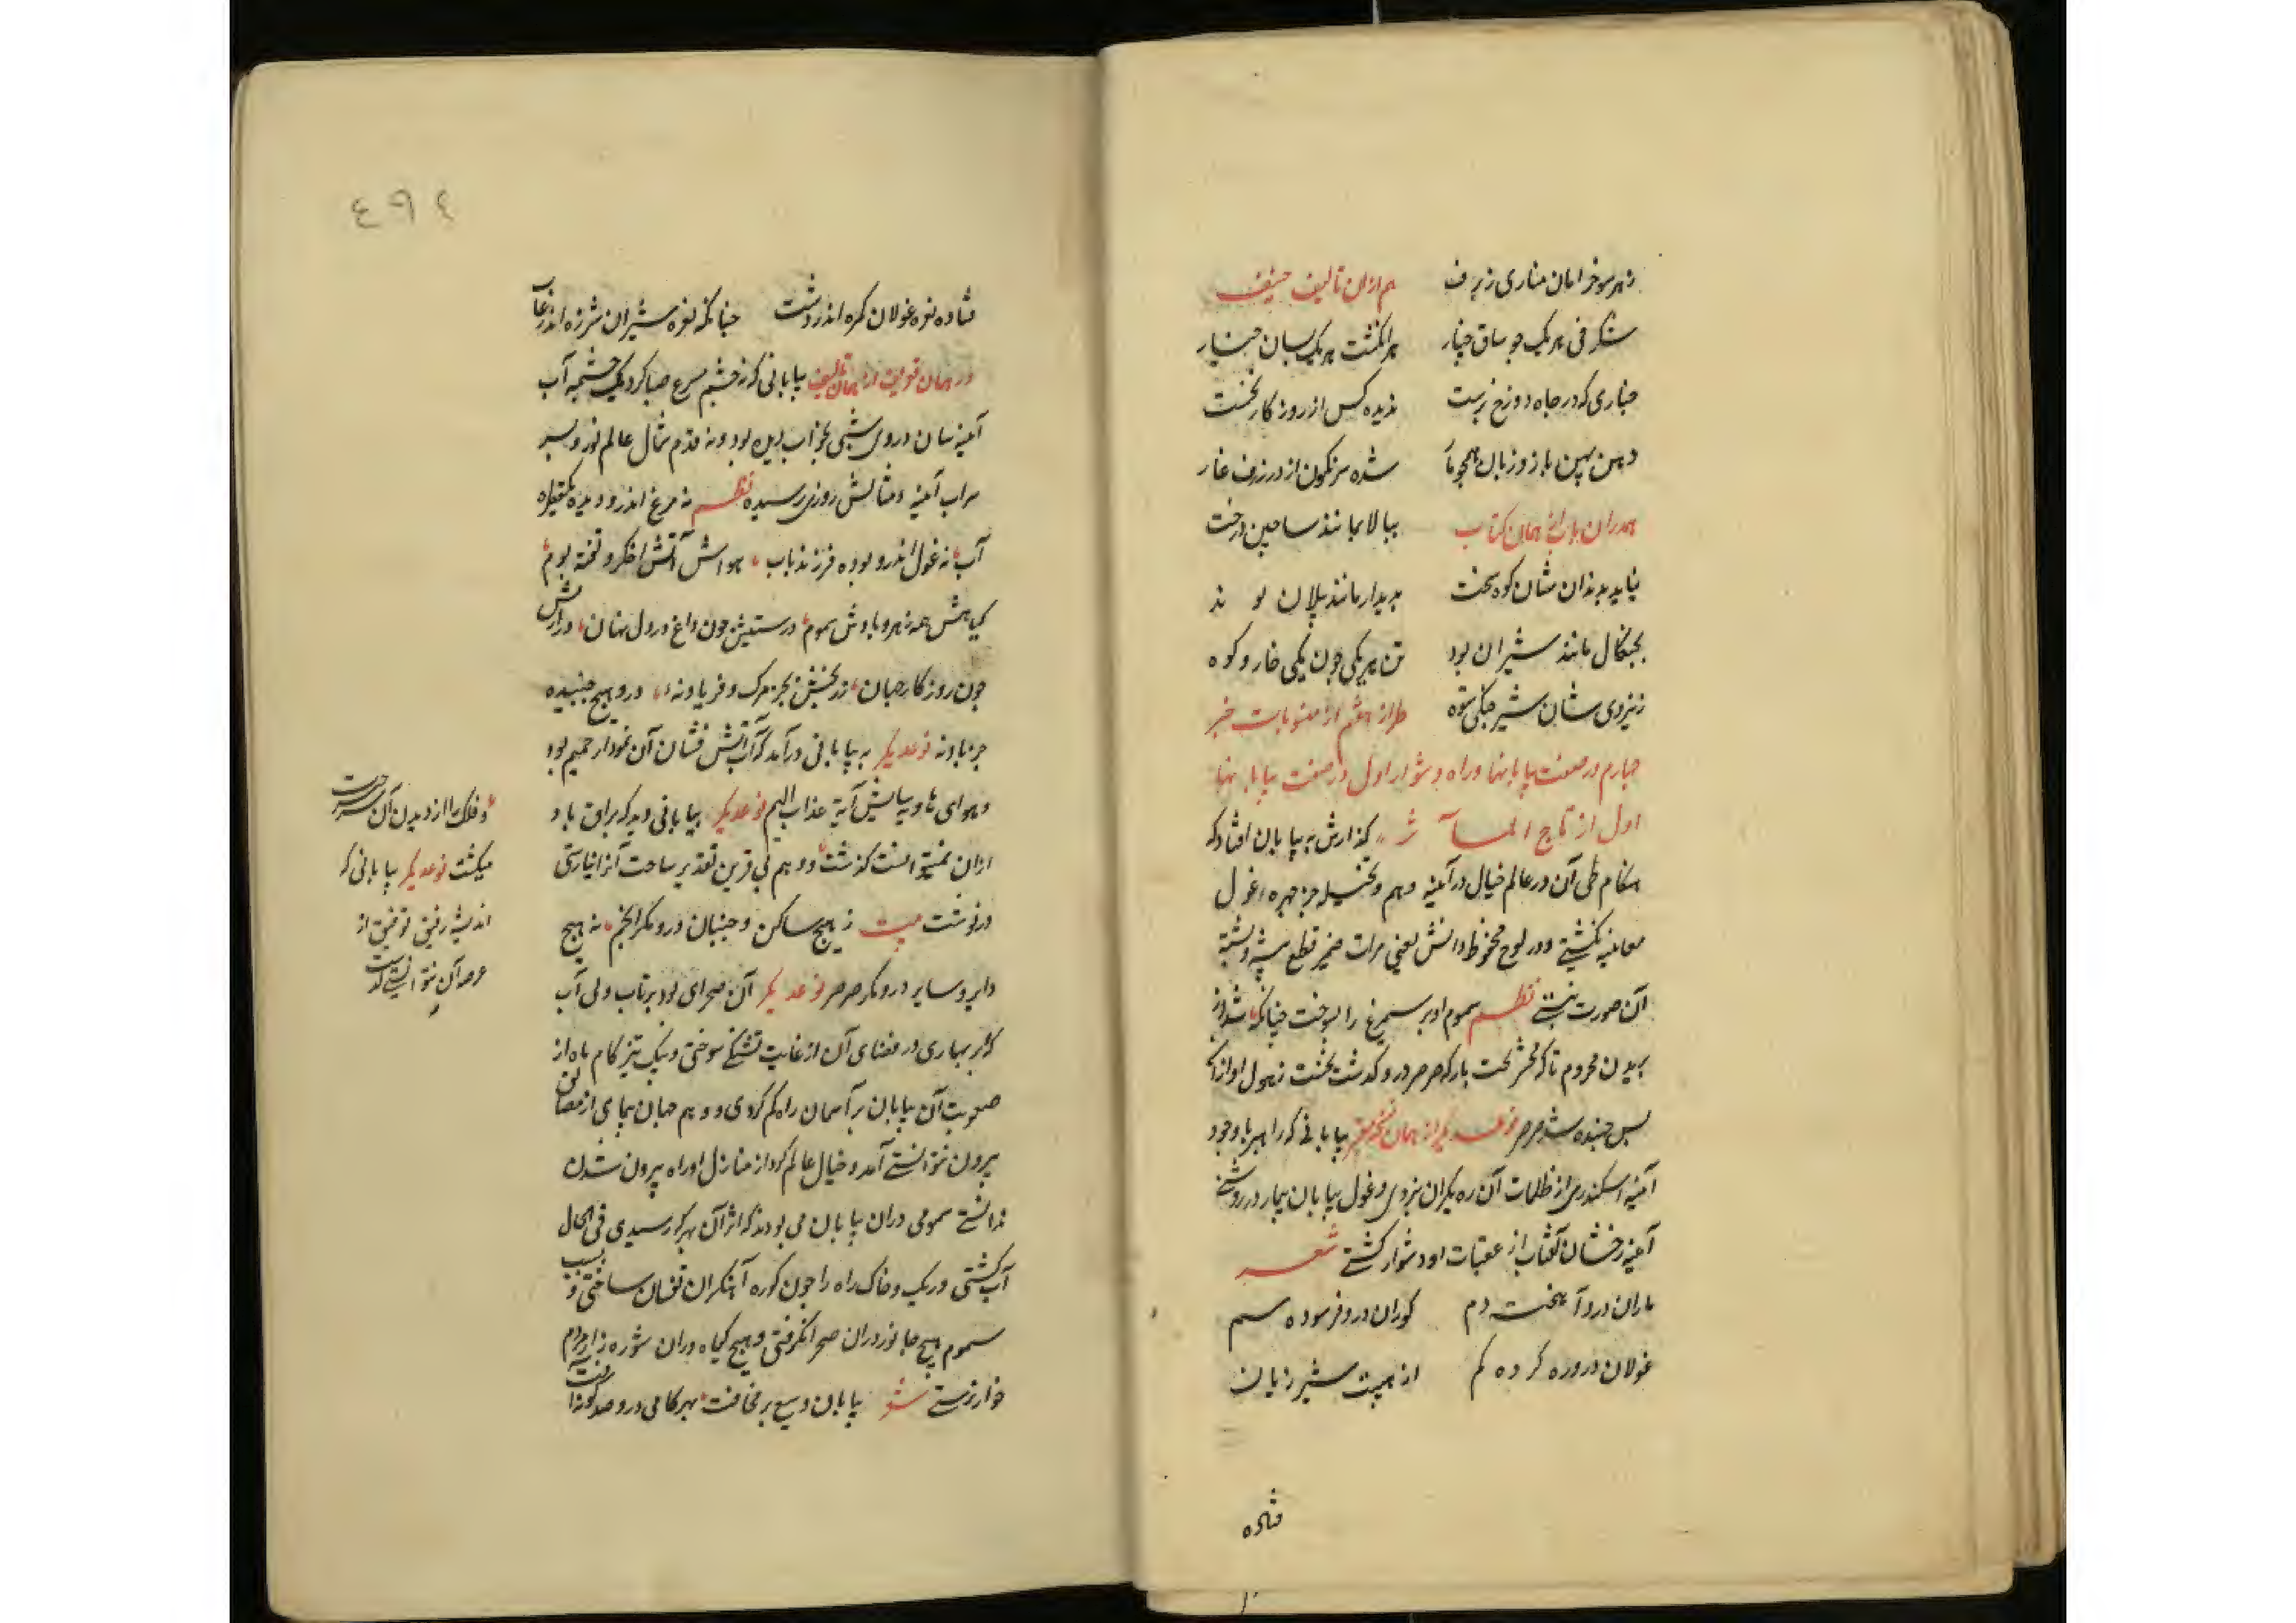 زهر سو خرامان مناری زبرف هم ازان تالیف حنیف
شکرفی هر یک چو ساق چنار هر انکشت هر یک بسان چنار
چناری که در چاه دوزخ برست ندیده کس از روزکار نخست
دهن پهن باز و زبان همچو مار شده سرنکون از در ژرف غار
همدران باب از همان کتاب ببالا بمانند ساجین درخت
بخاید بدندان شان کوه سخت بدیدار مانند پیلان بوند
بچنکال مانند شیران بود تن هر یکی چون یکی خار و کوه
ز نیروی شان شیر جنکی ستوه طراز هشتم از منسوبات خبر
چهارم در صفت بیابانها و راه دشوار اول در صفت بیابانها
اول از تاج المآثر کذارش به بیابان افتاد که
هنکام طی آن در عالم خیال در آینه وهم و تخیل جز چهره غول
معاینه نکشتی و در لوح محفوظ دانش یعنی مرات ضمیر قطع پشه و پشته
آن صورت نبستی نظم سموم او پر سیمرغ را بسوخت چنانکه شد از
پریدن محروم تا که محشر تخت بار که صرصر درو کدشت نخست ز هول او از آنکه
بس جنبنده شد صرصر نوعدیکر از همان بیابانی که راهبر با وجود
آینه اسکندری از ظلمات آن ره بکران نبردی و غول بیابان بیمار در روشنی
آینه رخشان آفتاب از عقبات او دشوار کشتی شعر
ماران درو آهخت دم کوران درو فرسوده سم
غولان درو ره کرده کم از هیبت شیر ژیان
فتاده
٤٩٤
فتاده نعره غولان کمره اندر دشت چنانکه نعره شیران شرزه اندر غاب
در همان تعریف از همان تالیف بیابانی که ز خشم مسرع صبا کرد یک چشمه آب
آینه سان در وی شبی بخواب ندیده بود و نه قدم مثال عالم نورد بسر
سراب آینه و مثالش روزی رسیده نظم نه مرغ اندرو دیده یکقطره
آب نه غول اندرو بوده فرزند باب هواش آتش اخکر و تفته بوم
کیاهش همه زهر و بادش سموم درستیش چون داغ در دل نهان درازیش
چون روزکار جهان نزد بخشش بجز مرک و فریاد نه درو هیچ جنبیده
جز باد نه نوعدیکر به بیابانی درآمد که آب آتش فشان آن نمودار حمیم بود
و هوای هاویه سایش آیة عذاب الیم نوعدیکر بیابانی دید که براق باد
ازان نمیتوانست کذشت و وهم بی قرین تقدیر ساحت آنرا نیارستی
درنوشت بیت ز هیچ ساکن و جنبان درو مکر انجم نه هیچ
دایر و سایر درو مکر صرصر نوعدیکر آن صحرای بود پرتاب و بی آب
که ابر بهاری در فضای آن از غایت تشنکی سوختی و پیک تیز کام ماه از
صعوبت آن بیابان بر آسمان راه کم کردی و وهم جهان پیمای از مضایق
بیرون نتوانستی آمد و خیال عالم کرد از منازل او راه بیرون شدن
ندانستی سمومی دران بیابان می بود که اثر آن بهر که رسیدی فی الحال
آب کشتی و ریک و خاک راه را چون کوره آهنکران تفسان ساختی و بسبب
سموم هیچ جانور دران صحرا نکرفتی و هیچ کیاه دران شوره زار مردم
خوار نرستی شعر بیابان وسیع پر مخافت بهر کامی درو صد کونه آفت
و فلک را از دیدن آن سر حیرت
میکشت نوعدیکر بیابانی که
اندیشه رفیق توفیق از
عرصه آن نتوانستی کذشت